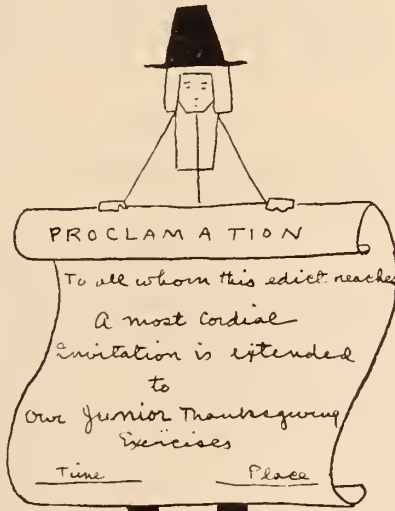 PROCLAMATION
To all whom this edict reaches
A most Cordial
Invitation is extended
to
Our Junior Thanksgiving
Exercises
Time Place